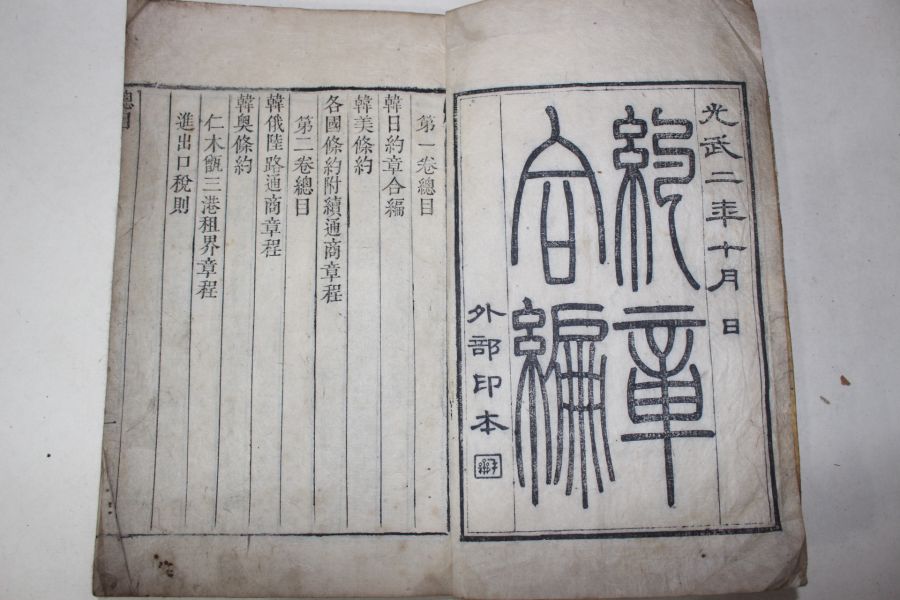 光武二年十月 日
約章
合編
外部印本
第一卷總目
韓日約章合編
韓美條約
各國條約附續通商章程
第二卷總目
韓俄陸路通商章程
韓奧條約
仁木甑三港租界章程
進出口稅則
總目